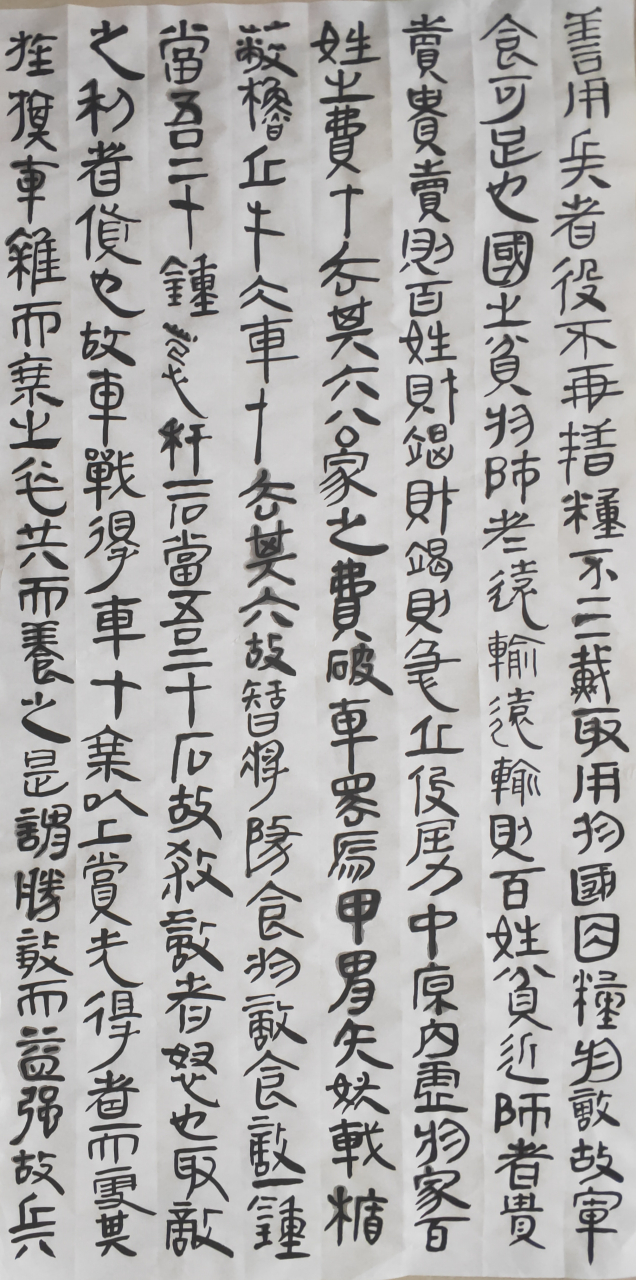 善用兵者役不再籍糧不三載取用於國因糧於敵故軍
食可足也國之貧於師者遠輸遠輸則百姓貧近師者貴
賣貴賣則百姓財竭財竭則急丘役屈力中原內虛於家百
姓之費十去其六公家之費破車罷馬甲胄矢弩戟楯
蔽櫓丘牛大車十去其六故智將務食於敵食敵一鍾
當吾二十鍾秆一石當吾二十石故殺敵者怒也取敵
之利者貨也故車戰得車十乘以上賞先得者而更其
旌旗車雜而乘之卒共而養之是謂勝敵而益強故兵